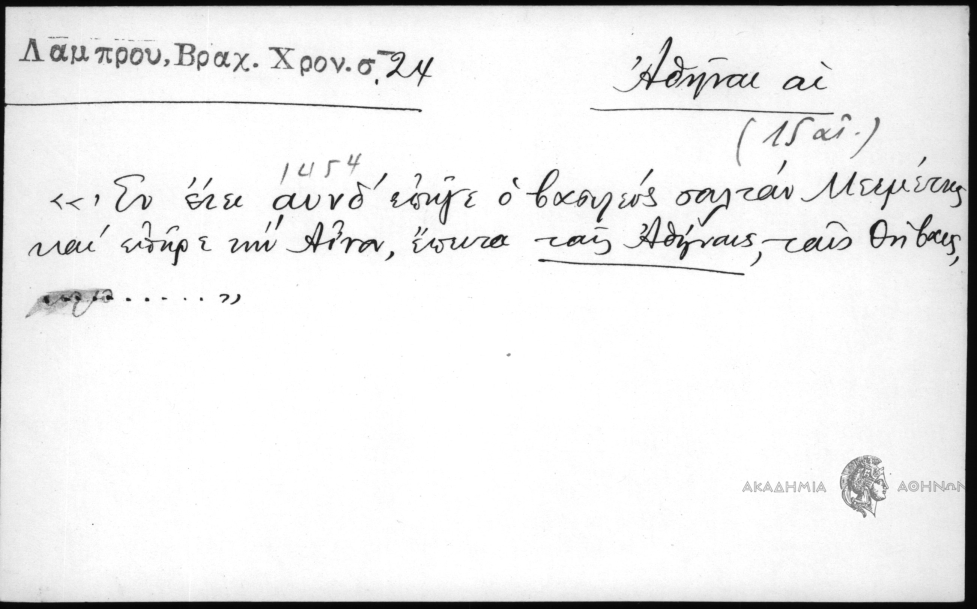 Λάμπρου, Βραχ. Χρον. σ. 24
Ἀθῆναι αἱ
(15 αἰ.)
1454
«Ἐν ἔτει αυνδ' ἐπῆγε ὁ βασιλεύς σολτάν Μεεμέτης
καί ἐπῆρε τήν Αἶνον, ἔπειτα ταῖς Ἀθήναις, ταῖς Θήβαις,
.........»
ΑΚΑΔΗΜΙΑ ΑΘΗΝΩΝ